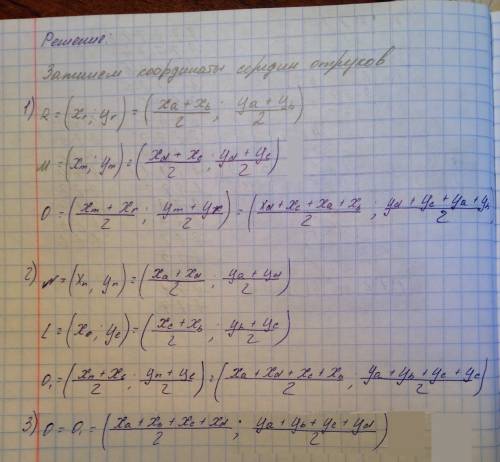 Решение:
Запишем координаты середин отрезков
1) R = (xr; yr) = (xa + xb / 2 ; ya + yb / 2)
M = (xm; ym) = (xd + xc / 2 ; yd + yc / 2)
O = (xm + xr / 2 ; ym + yr / 2) = (xd + xc + xa + xb / 2 ; yd + yc + ya + yb / 2
2) N = (xn, yn) = (xa + xd / 2 ; ya + yd / 2)
L = (xe; ye) = (xc + xb / 2 ; yb + yc / 2)
O₁ = (xn + xe / 2 ; yn + ye / 2) = (xa + xd + xc + xb / 2 , ya + yb + yc + yd / 2)
3) O = O₁ = (xa + xb + xc + xd / 2 ; ya + yb + yc + yd / 2)